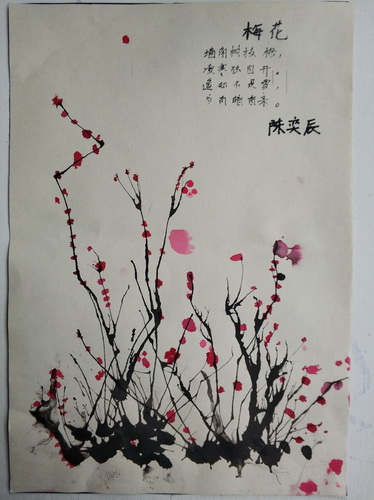 梅花
墙角树枝梅，
凌寒独自开。
遥知不是雪，
为有暗香来。
陈奕辰